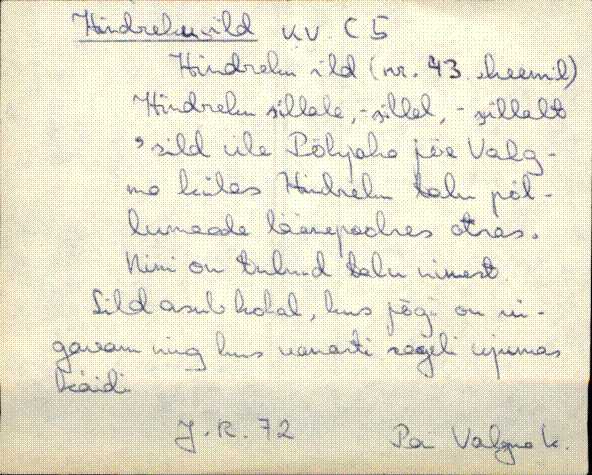 Hindreku sild KV C5
Hindreku sild (nr. 43 skeemil)
Hindreku sillale, -sillel, -sillalt
sild üle Põhjaka jõe Valg-
ma külas Hindreku talu põl-
lumaade läänepoolses otsas.
Nimi on tulnud talu nimest.
Sild asub kohal, kus jõgi on sü-
gavam ning kus vanasti sageli ujumas
käidi.
J. R. 72 Pa Valgma k.